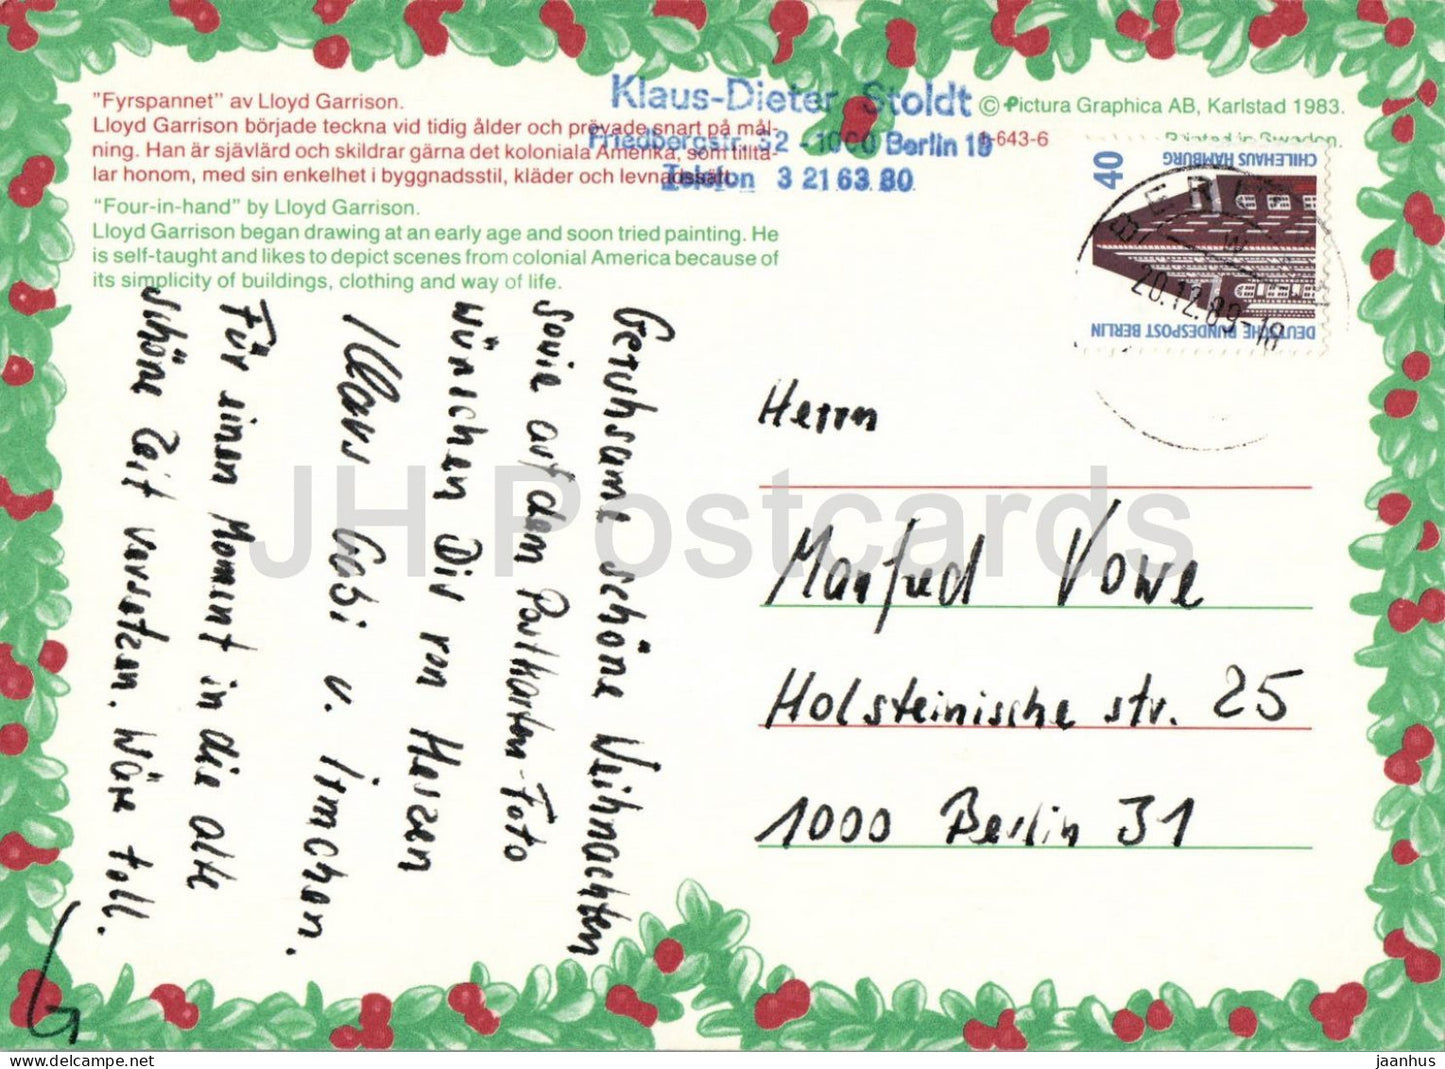 "Fyrspannet" av Lloyd Garrison.
Lloyd Garrison började teckna vid tidig ålder och prövade snart på mål-
ning. Han är sjävlärd och skildrar gärna det koloniala Amerika, som tillta-
lar honom, med sin enkelhet i byggnadsstil, kläder och levnadssätt.
"Four-in-hand" by Lloyd Garrison.
Lloyd Garrison began drawing at an early age and soon tried painting. He
is self-taught and likes to depict scenes from colonial America because of
its simplicity of buildings, clothing and way of life.
Klaus-Dieter Stoldt
Friedbergstr. 32 - 1000 Berlin 19
Telefon 3 21 63 80
© Pictura Graphica AB, Karlstad 1983.
643-6
Printed in Sweden.
40
CHILEHAUS HAMBURG
DEUTSCHE BUNDESPOST BERLIN
BERLIN
20.12.89-18
Geruhsame schöne Weihnachten
sowie auf dem Postkarten-Foto
wünschen Dir von Herzen
Klaus Gabi u. Irmchen.
Für einen Moment in die alte
schöne Zeit versetzen. Wäre toll.
Herrn
Manfred Vowe
Holsteinische str. 25
1000 Berlin 31
JH Postcards
www.delcampe.net
jaanhus